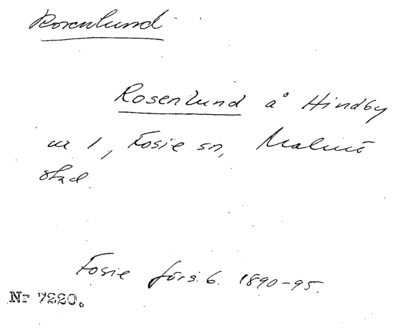 Rosenlund
Rosenlund å Hindby
nr 1, Fosie sn, Malmö
stad.
Fosie förs.b. 1890-95.
Nr 7220.